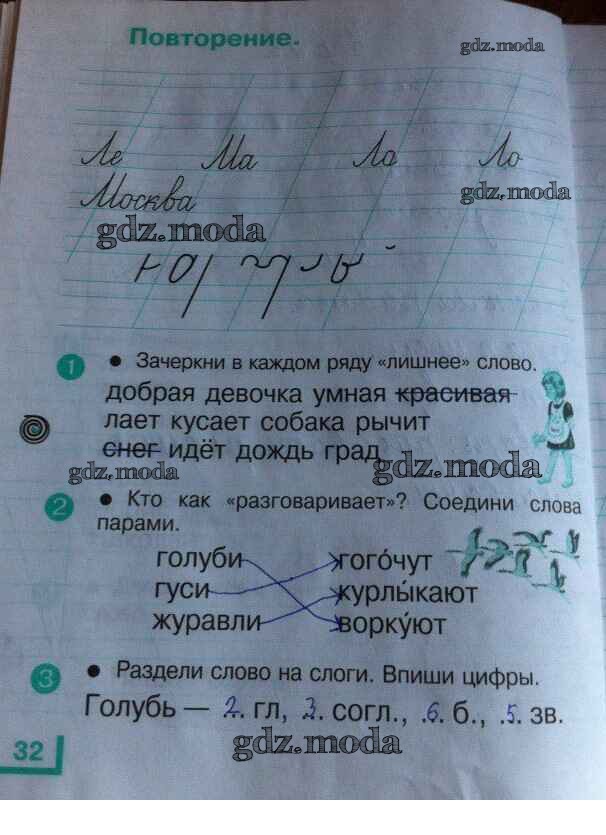 Повторение.
gdz.moda
Ле Ма Ла Ло
Москва
gdz.moda
gdz.moda
1 • Зачеркни в каждом ряду «лишнее» слово.
добрая девочка умная красивая
лает кусает собака рычит
снег идёт дождь град
gdz.moda
gdz.moda
2 • Кто как «разговаривает»? Соедини слова
парами.
голуби гого́чут
гуси курлы́кают
журавли ворку́ют
3 • Раздели слово на слоги. Впиши цифры.
Голубь — .2. гл, .3. согл., .6. б., .5. зв.
32
gdz.moda